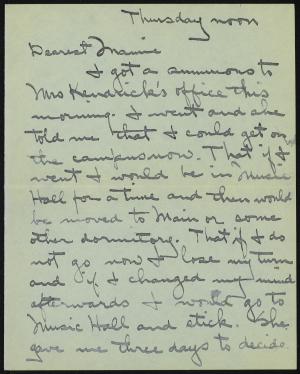 Thursday noon
Dearest Mamie
I got a summons to
Mrs Kendrick's office this
morning. I went and she
told me that I could get on
the campus now. That if I
went I would be in Music
Hall for a time and then would
be moved to Main or some
other dormitory. That if I do
not go now I lose my turn
and if I changed my mind
afterwards I would go to
Music Hall and stick. She
gave me three days to decide.